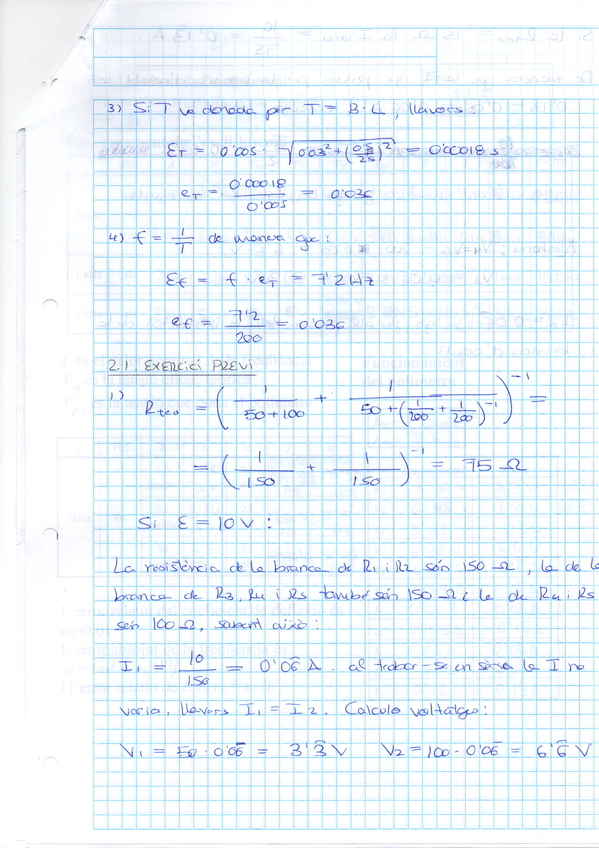 3) Si T ve donada per T = B·L, llavors:
ε_T = 0'005 · √(0'03² + (0'5/25)²) = 0'00018 s
e_T = 0'00018/0'005 = 0'036
4) f = 1/T de manera que:
ε_f = f · e_T = 7'2 Hz
e_f = 7'2/200 = 0'036
2.1. EXERCICI PREVI
1) R_teo = (1/(50+100) + 1/(50+(1/200 + 1/200)⁻¹))⁻¹ =
= (1/150 + 1/150)⁻¹ = 75 Ω
Si ε = 10 V :
La resistència de la branca de R1 i R2 són 150 Ω, la de la
branca de R3, R4 i R5 també són 150 Ω i la de R4 i R5
són 100 Ω, sabent això:
I₁ = 10/150 = 0'06̄ A. al trobar-se en sèrie la I no
varia, llavors I₁ = I₂. Calculo voltatges:
V₁ = 50 · 0'06̄ = 3'3̄ V V₂ = 100 · 0'06̄ = 6'6̄ V